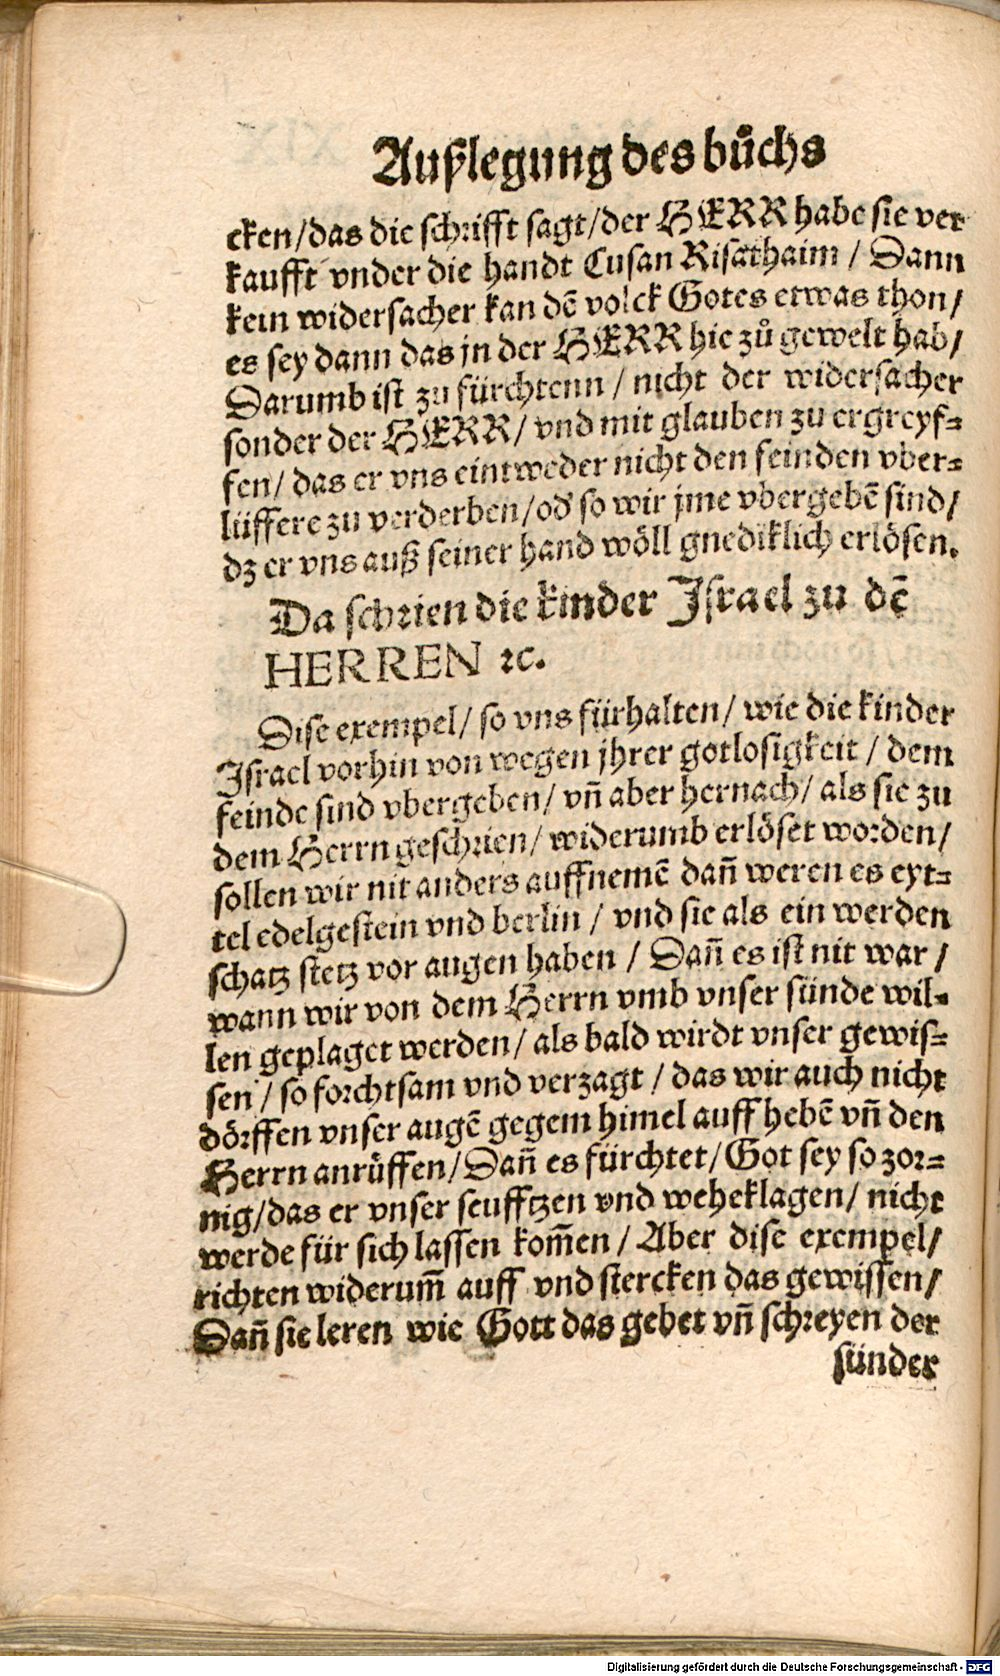 Außlegung des bůchs
cken/das die schrifft sagt/der HERR habe sie ver
kaufft vnder die handt Cusan Risathaim / Dann
kein widersacher kan dē volck Gotes etwas thon/
es sey dann das jn der HERR hie zů gewelt hab/
Darumb ist zu fürchtenn / nicht der widersacher
sonder der HERR/ vnd mit glauben zu ergreyf=
fen/ das er vns eintweder nicht den feinden vber=
lüffere zu verderben/od' so wir jme vbergebē sind/
dz er vns auß seiner hand wöll gnediklich erlösen.
Da schrien die kinder Israel zu dē
HERREN ꝛc.
Dise exempel/ so vns fürhalten/ wie die kinder
Israel vorhin von wegen jhrer gotlosigkeit / dem
feinde sind vbergeben/ vn̄ aber hernach/ als sie zu
dem Herrn geschrien/ widerumb erlöset worden/
sollen wir nit anders auffnemē dan̄ weren es eyt=
tel edelgestein vnd berlin / vnd sie als ein werden
schatz stetz vor augen haben / Dan̄ es ist nit war /
wann wir von dem Herrn vmb vnser sünde wil=
len geplaget werden/ als bald wirdt vnser gewis=
sen / so forchtsam vnd verzagt / das wir auch nicht
dörffen vnser augē gegem himel auff hebē vn̄ den
Herrn anrüffen/ Dan̄ es fürchtet/ Got sey so zor=
nig/das er vnser seufftzen vnd weheklagen/ nicht
werde für sich lassen kom̄en / Aber dise exempel/
richten widerum̄ auff vnd stercken das gewissen/
Dan̄ sie leren wie Gott das gebet vn̄ schreyen der
sünder
Digitalisierung gefördert durch die Deutsche Forschungsgemeinschaft - DFG